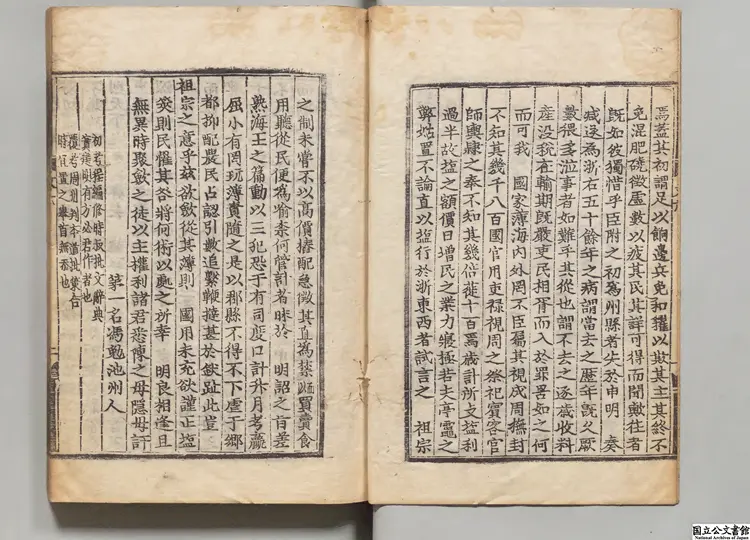 焉蓋其初謂足以餉邊兵免和糴以欺其主其終不
免混肥磽徵虛數以疲其民其詳可得而聞歟往者
既如彼獨惜乎臣附之初爲州縣者失於申明 奏
減遂爲浙右五十餘年之病謂當去之歷年既久厥
數猥多泣事者如難乎其從也謂不去之逐歲收料
産没稅在輸期既嚴吏民相胥而入於罪咎如之何
而可我 國家薄海内外罔不臣屬其視成周撫封
不知其幾千八百國官用吏祿視周之祭祀賓客官
師輿隸之奉不知其幾倍徙十百焉歲計所支塩利
過半故塩之額價日增民之業力寖極若夫亭竈之
弊姑置不論直以塩行於浙東西者試言之 祖宗
之制未嘗不以高價搭配急徵其直為禁 買賣食
用聽從民便爲喻柰何管計者昧於 明詔之旨差
熟海王之篇動以三犯恐于有司度口計升月考贏
屈小有罔玩薄責隨之是以郡縣不得不下虐于鄉
都抑配農民占認引數追繫鞭撻甚於 趾此豈
祖宗之意乎玆欲歛從其薄則 國用未充欲謹正塩
筴則民懼其咎將何術以處之所幸 明良相逢且
無異時聚歛之徒以主權利諸君悉陳之毋隱毋訂
第一名馮勉池州人
初考梁編修時敏批文辭典
實進對有方必君作者也
覆考周提刑本道批策合
時宜置之舉首無忝也
国立公文書館
National Archives of Japan